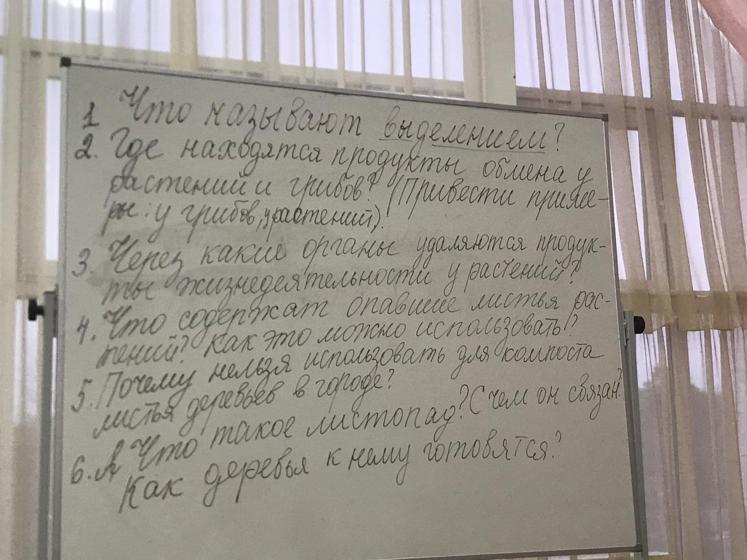 1 Что называют выделением?
2. Где находятся продукты обмена у
растений и грибов? (Привести приме-
ры: у грибов, растений).
3. Через какие органы удаляются продук-
ты жизнедеятельности у растений?
4. Что содержат опавшие листья рас-
тений? Как это можно использовать?
5. Почему нельзя использовать для компоста
листья деревьев в городе?
6. Что такое листопад? С чем он связан?
Как деревья к нему готовятся?